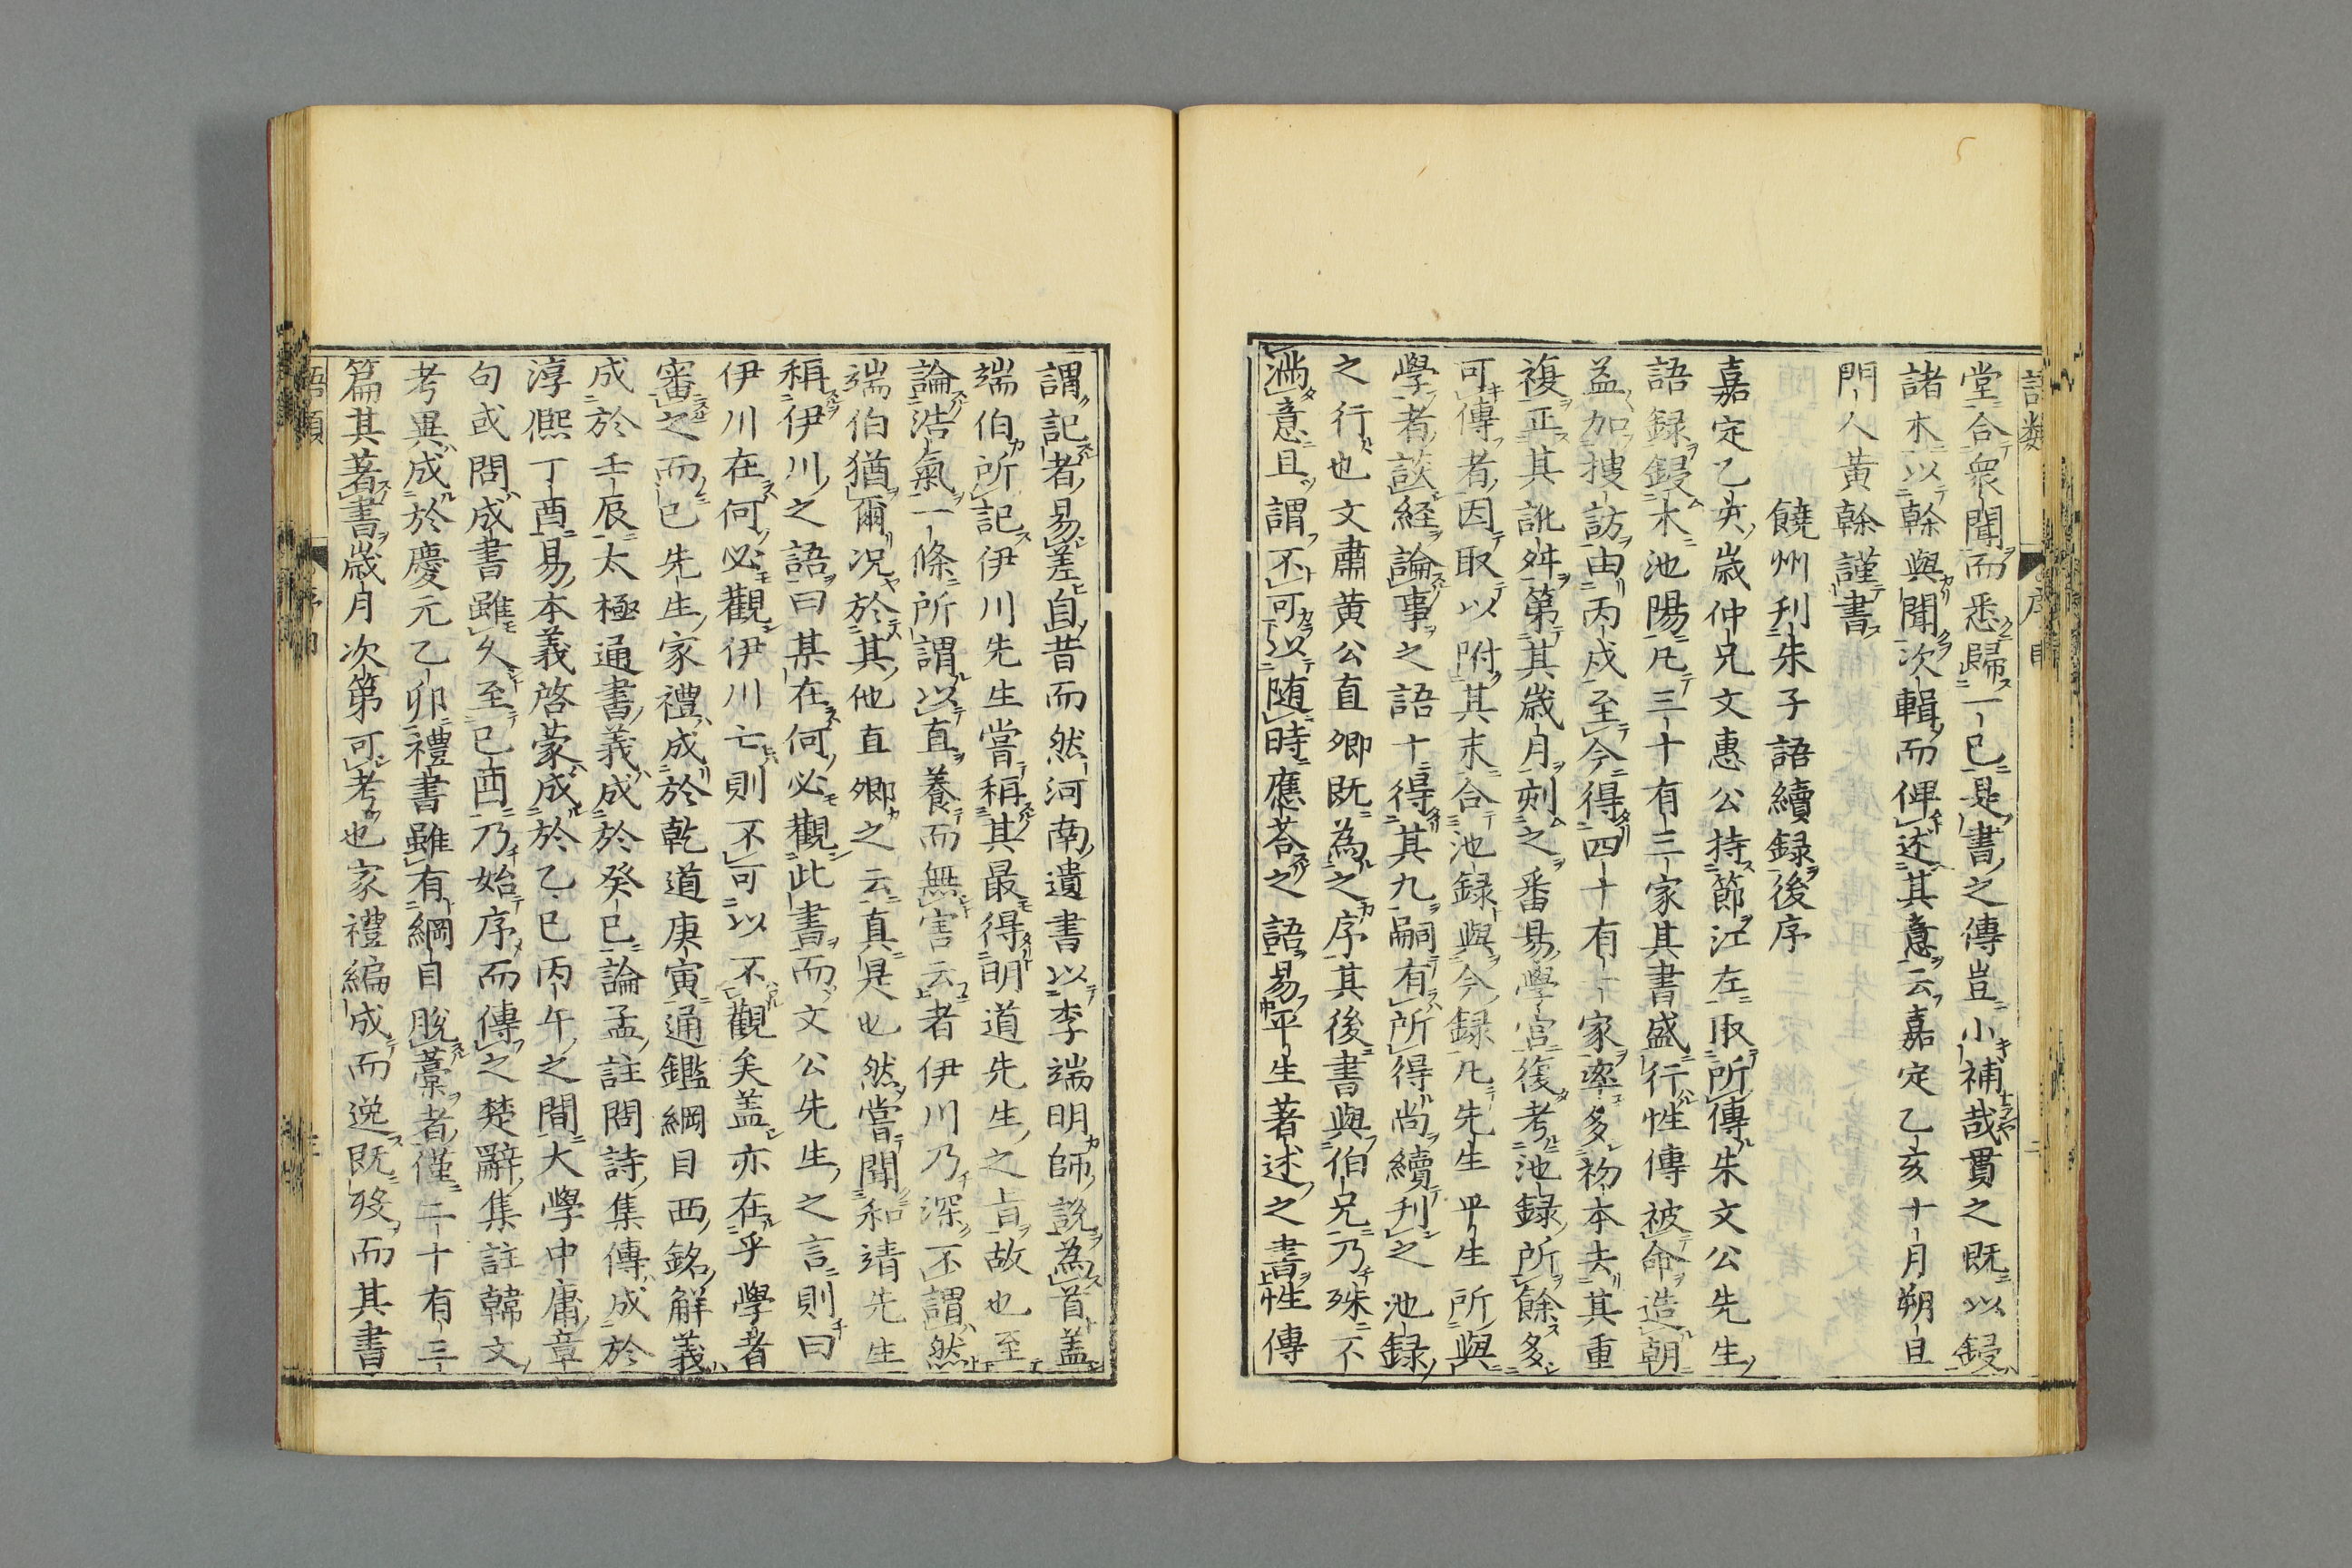 堂合衆聞而悉歸一已是書之傳豈小補哉貫之既以鋟
諸木以榦與聞次輯而俾述其意云嘉定乙亥十月朔旦
門人黃榦謹書
饒州刋朱子語續録後序
嘉定乙亥歲仲兄文惠公持節江左取所傳朱文公先生
語録鋟木池陽凡三十有三家其書盛行性傳被命造朝
益加搜訪由丙戌至今得四十有一家率多初本去其重
複正其訛舛第其歲月刻之番易學宮復考池録所餘多
可傳者因取以附其末合池録與今録凡先生平生所與
學者談経論事之語十得其九嗣有所得尚續刋之池録
之行也文肅黄公直卿既為之序其後書與伯兄乃殊不
滿意且謂不可以随時應荅之語易平生著述之書性傳
謂記者易差自昔而然河南遺書以李端明師說為首盖
端伯所記伊川先生嘗稱其最得明道先生之旨故也至
論浩氣一條所謂以直養而無害云者伊川乃深不謂然
端伯猶爾况於其他直卿之云真是也然嘗聞和靖先生
稱伊川之語曰某在何必觀此書而文公先生之言則曰
伊川在何必觀伊川亡則不可以不觀矣盖亦在乎學者
審之而已先生家禮成於乾道庚寅通鑑綱目西銘解義
成於壬辰太極通書義成於癸巳論孟註問詩集傳成於
淳熈丁酉易本義啓蒙成於乙巳丙午之間大學中庸章
句或問成書雖久至己酉乃始序而傳之楚辭集註韓文
考異成於慶元乙卯禮書雖有綱目脫藁者僅二十有三
篇其著書歲月次第可考也家禮編成而逸既殁而其書